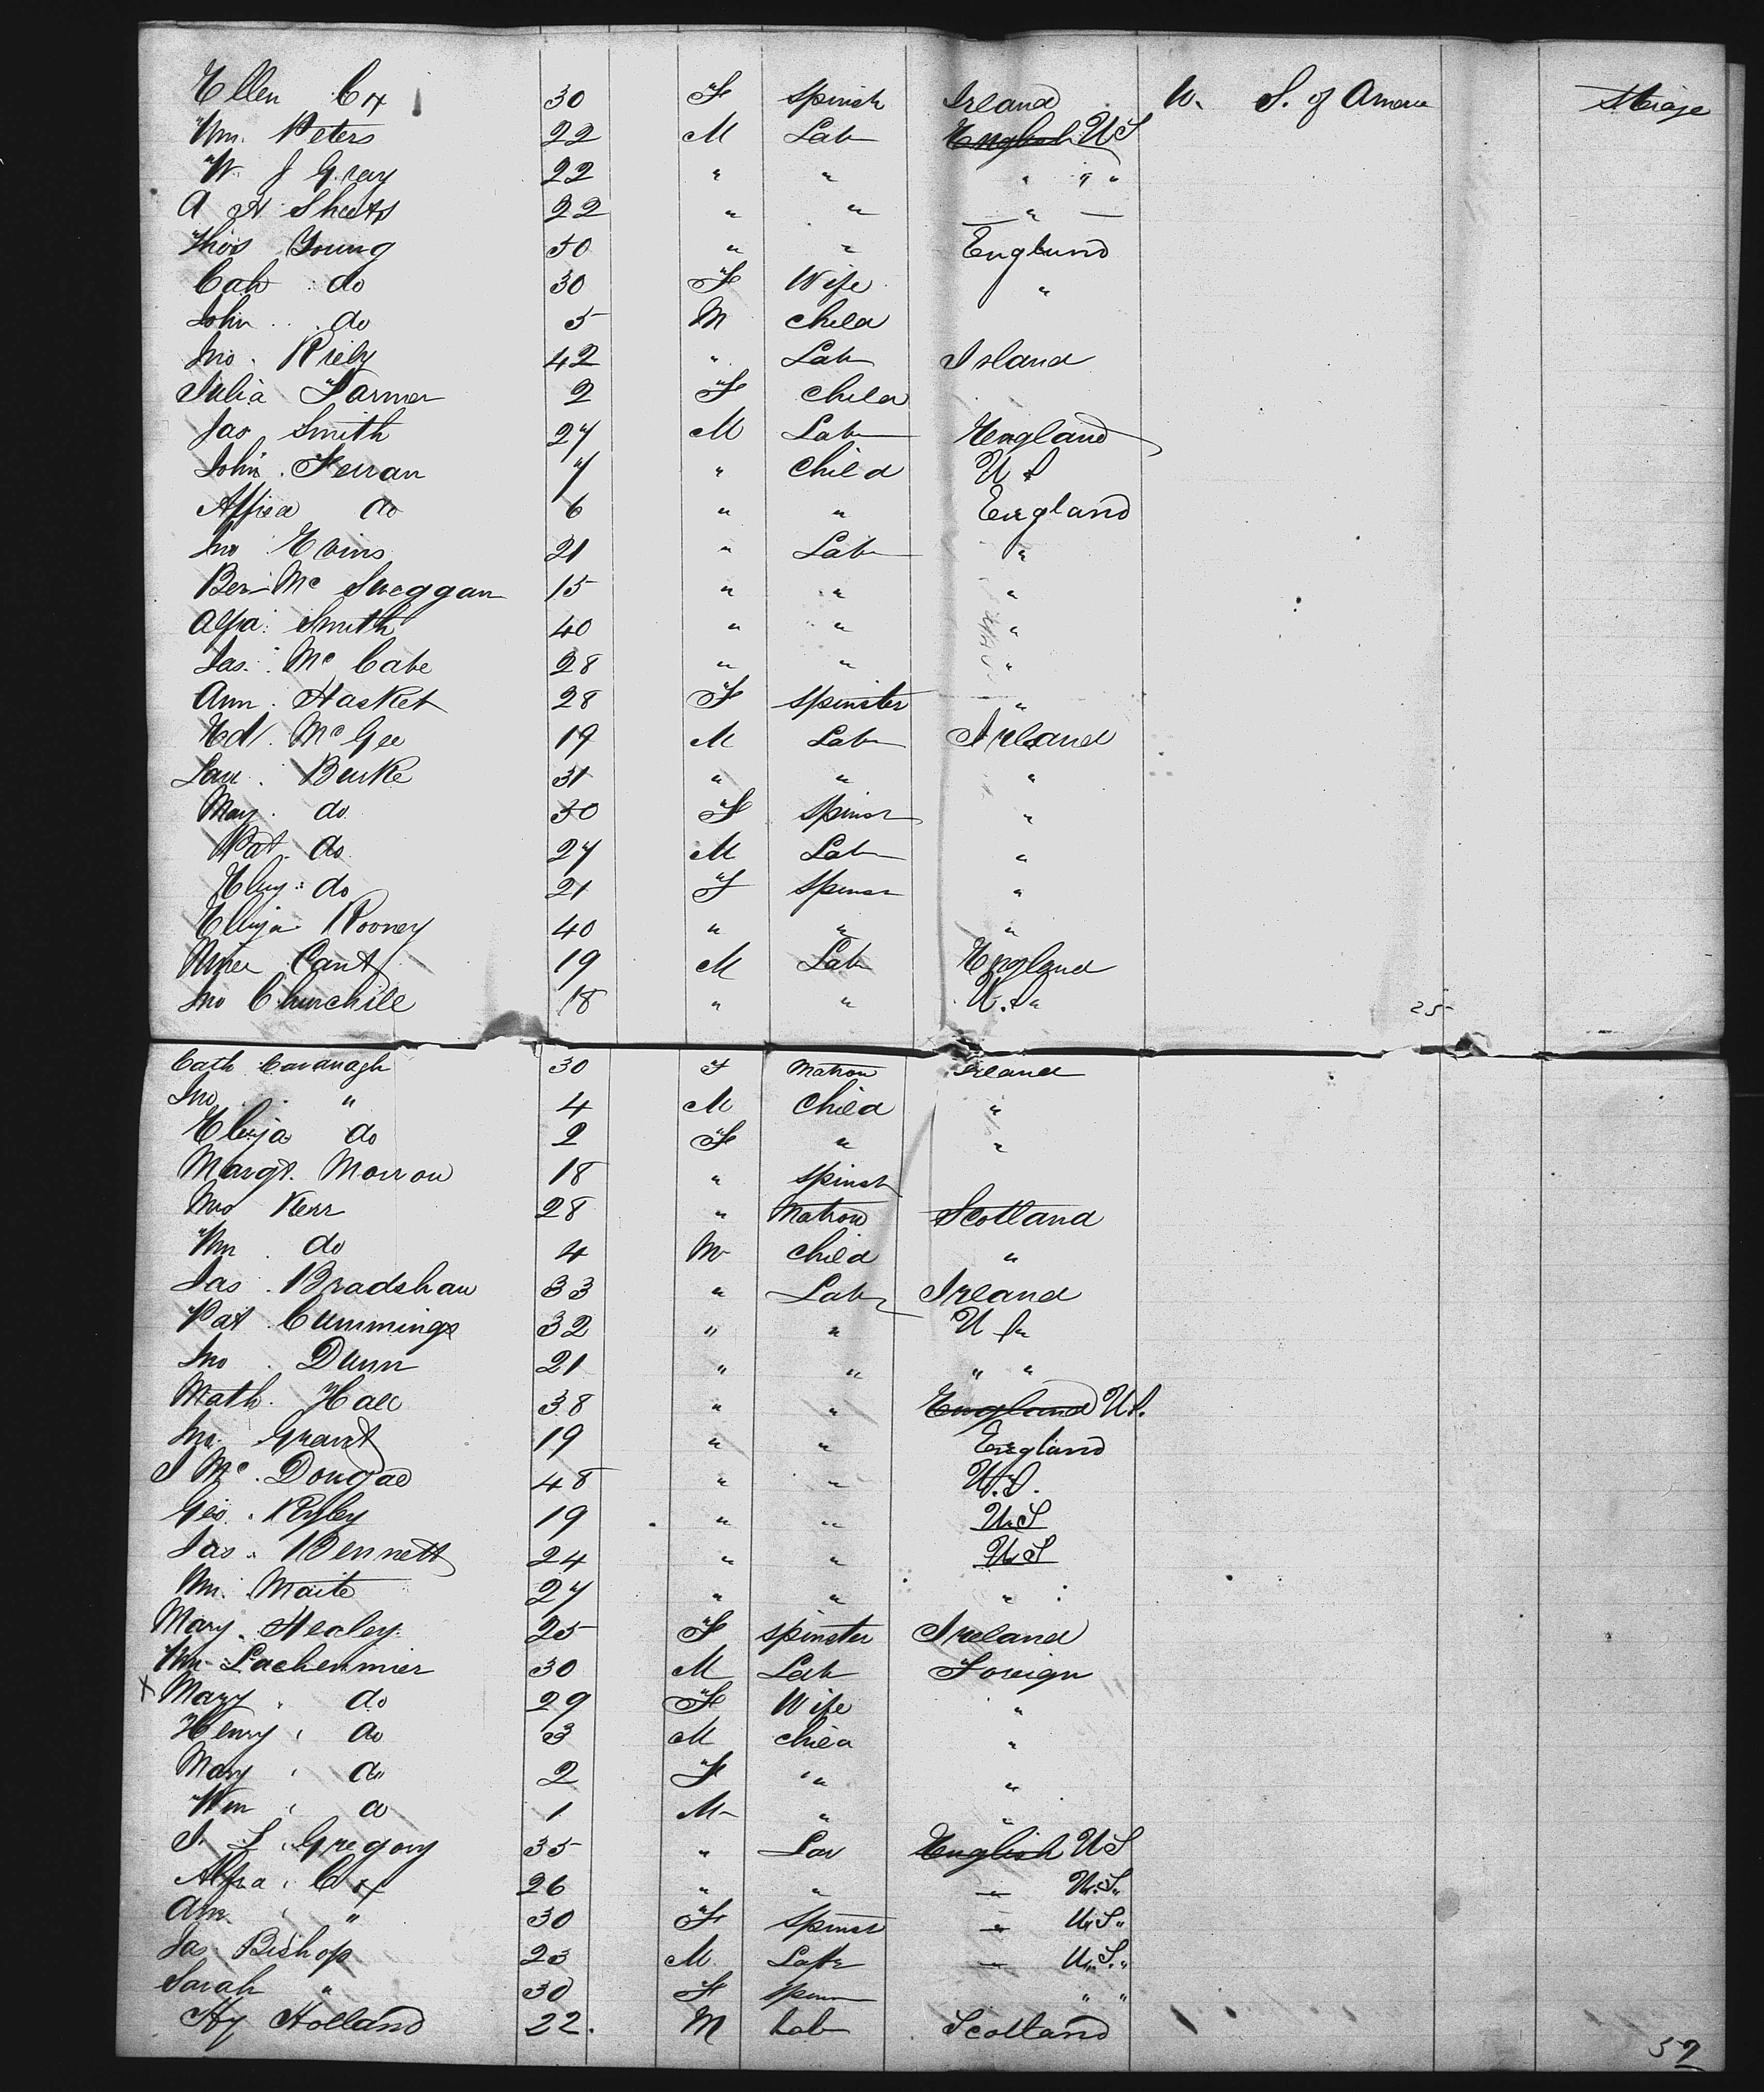 Ellen Cox 30 F Spinstr Ireland U. S. of America Steerage
Wm. Peters 22 M Lab English US
W J Gray 22 " " " " "
A H Sheets 22 " " "
Thos Young 50 " " England
Cath do 30 F Wife "
John do 5 M Child
Jno. Riely 42 " Lab Ireland
Julia Farmer 2 F Child
Jas Smith 27 M Lab England
John Ferran 7 " Child U S
Alfred do 6 " " England
Jno Evins 21 " Lab "
Ben Mc Sweggan 15 " " "
Alfd. Smith 40 " " "
Jas. Mc Cabe 28 " " "
Ann Hasket 28 F Spinster "
Ed. McGee 19 M Lab Ireland
Lau. Burke 31 " " "
May. do 30 F Spinsr "
Pat. do 27 M Lab "
Eliz: do 21 F Spinsr "
Eliza Rooney 40 " " "
Cant 19 M Lab England
Jno Churchill 18 " " U.S. 25
Cath Cavanagh 30 F Matron Ireland
Jno " 4 M Child "
Eliza do 2 F " "
Margt. Morrow 18 " Spinstr
Mrs Kerr 28 " Matron Scotland
Wm do 4 M Child "
Jas. Bradshaw 33 " Lab Ireland
Pat Cummings 32 " " U S
Jno. Dunn 21 " " " "
Math. Hall 38 " " England U.S.
Jno. Grant 19 " " England
J Mc. Dougal 48 " " U.S.
Geo. Rigley 19 " " U.S
Jas. Bennett 24 " " U S
Wm. Waite 27 " " "
Mary. Healey 25 F Spinster Ireland
Wm Lachenmier 30 M Lab Foreign
x Mary do 29 F Wife "
Henry do 3 M Child "
Mary do 2 F " "
Wm do 1 M " "
J. L Gregory 35 " Lab English US
Alfred Cox 26 " " " U.S.
Ann " 30 F Spinstr " U.S.
Ja. Bishop 23 M Labr " U.S.
Sarah " 30 F Spinr " "
Hy Holland 22. M Lab Scotland
52